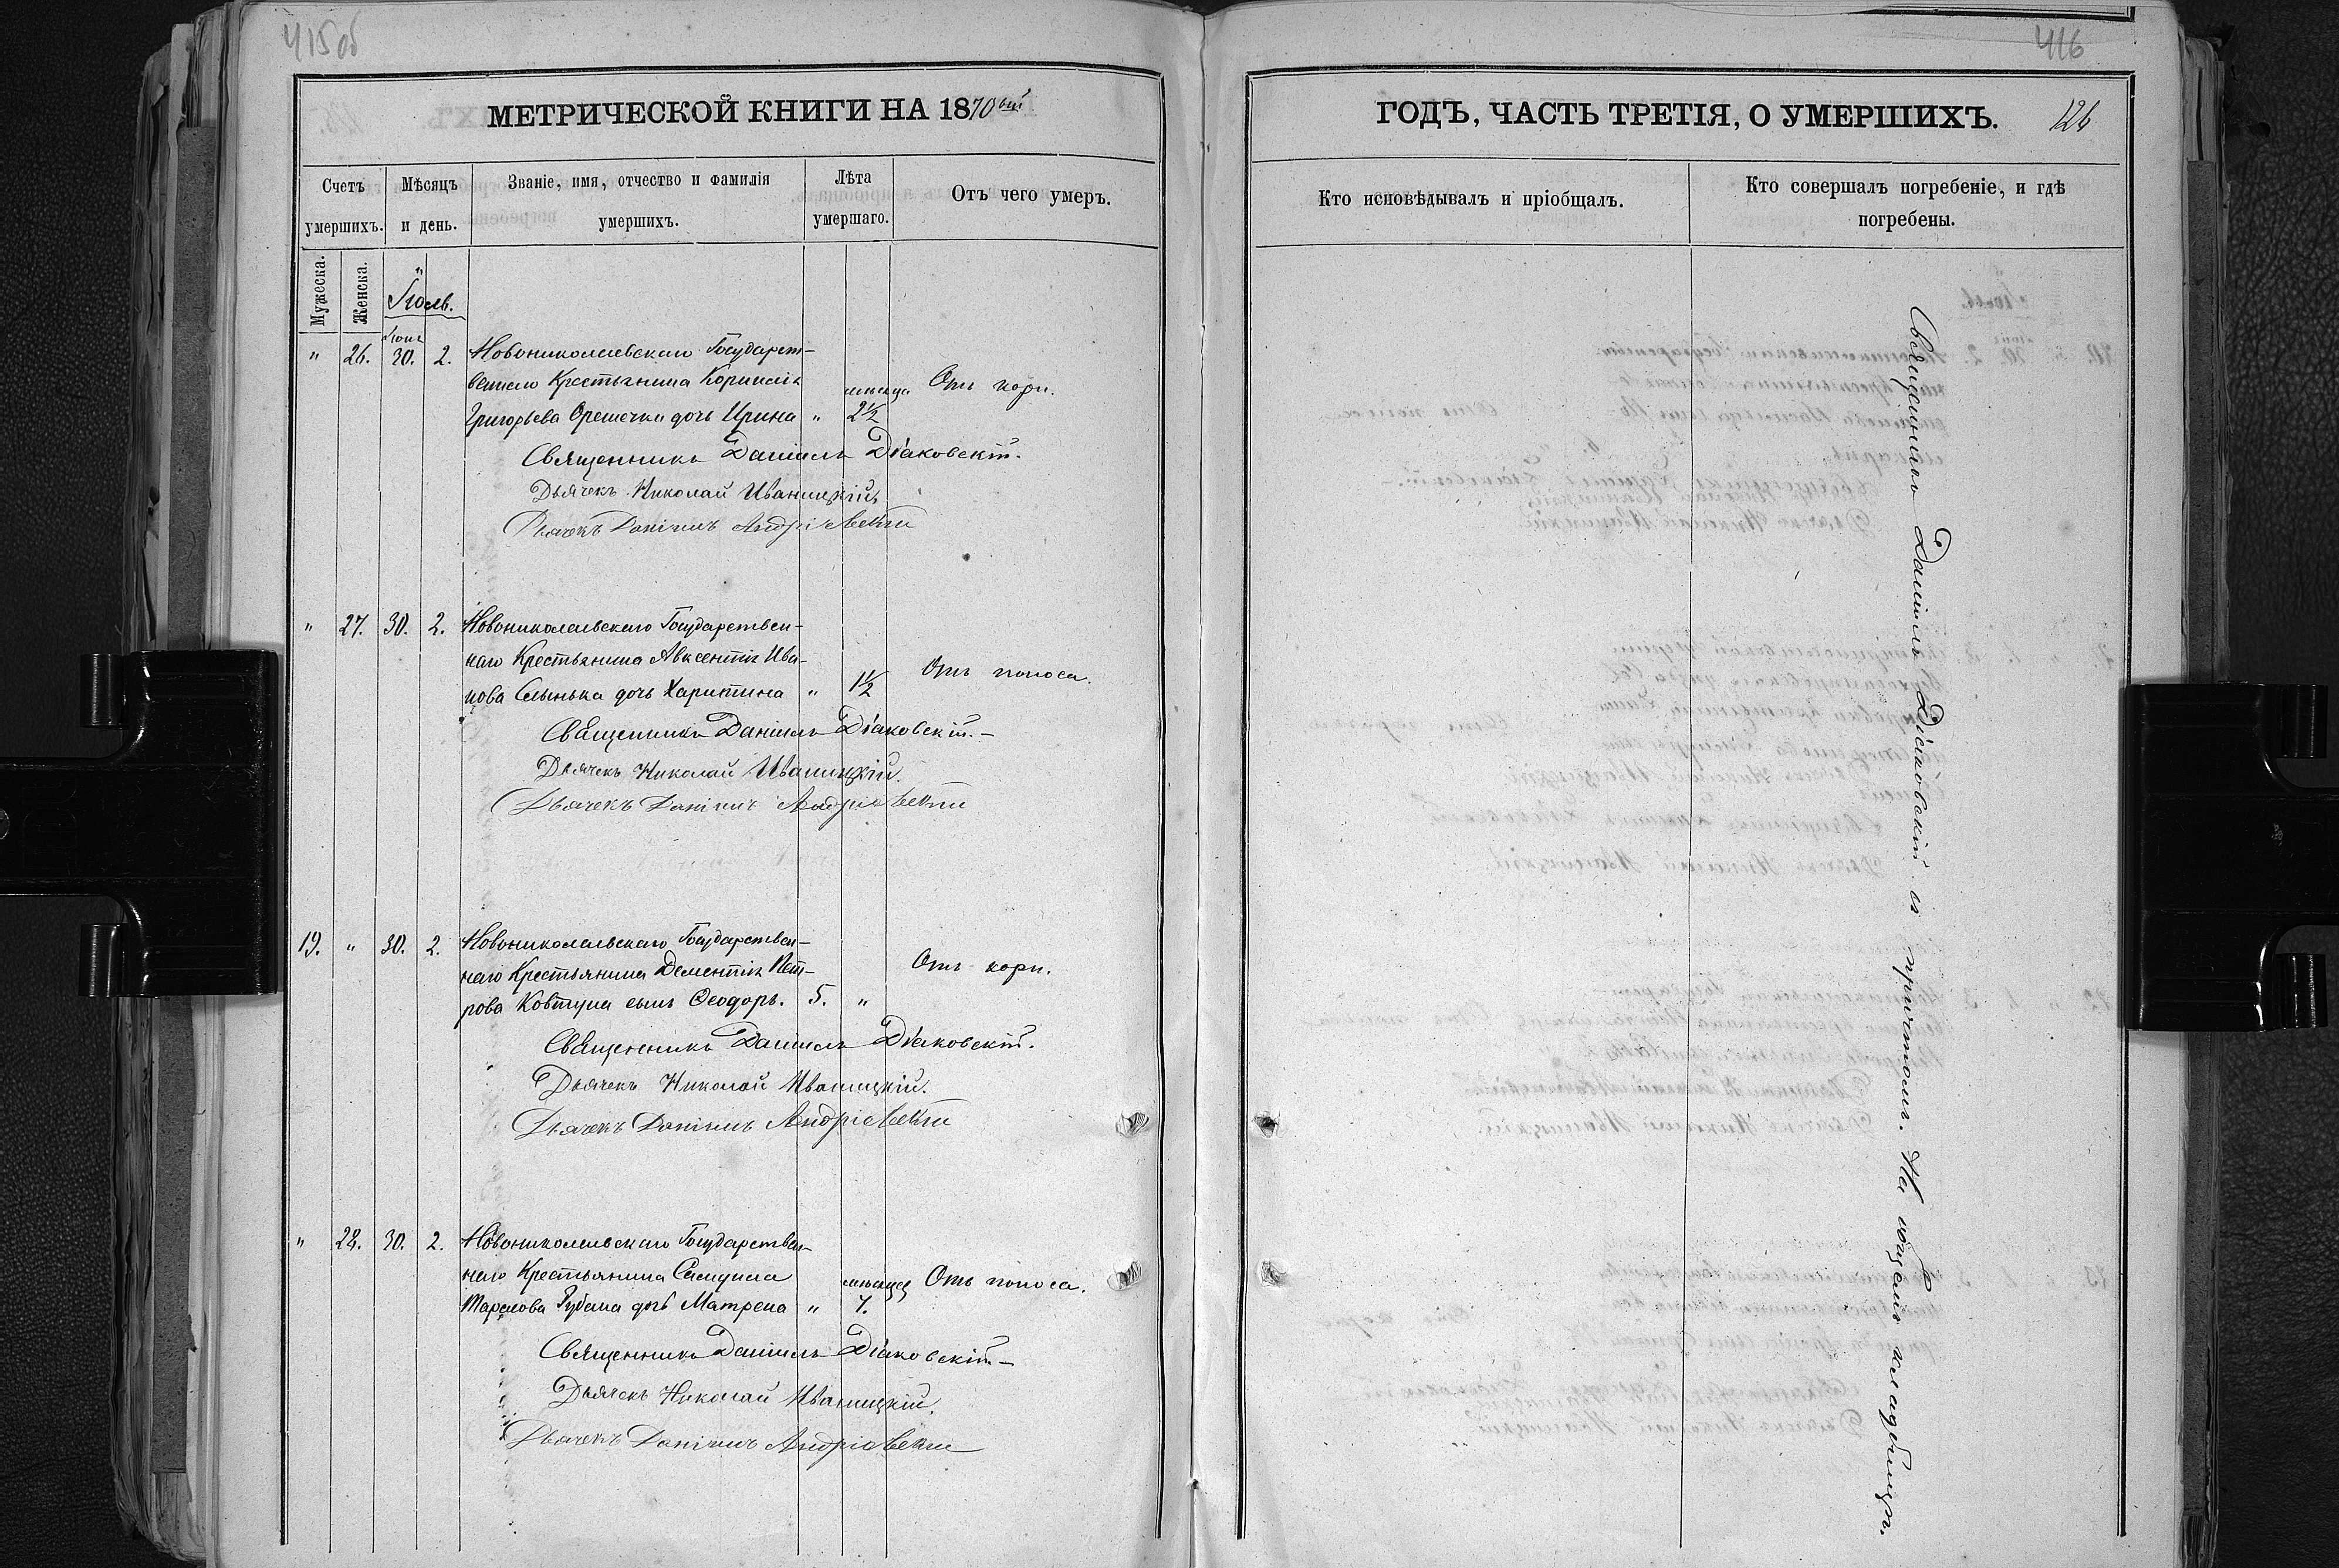 415об
МЕТРИЧЕСКОЙ КНИГИ НА 1870ый
Счетъ умершихъ.
Мѣсяцъ и день.
Званіе, имя, отчество и фамилія умершихъ.
Лѣта умершаго.
Отъ чего умеръ.
Мужеска.
Женска.
Іюль.
Іюнь
" 26. 30. 2. Новониколаевскаго Государст-
веннаго Крестьянина Корнилія мѣсяца Отъ кори.
Григорьева Орешечки дочь Ирина " 2½
Священникъ Даніилъ Діаковскій.
Дьячекъ Николай Иваницкій.
Дьячекъ Даніилъ Андріевскій
" 27. 30. 2. Новониколаевскаго Государствен-
наго Крестьянина Авксентія Ива-
нова дочь Харитина " 1½ Отъ поноса.
Священникъ Даніилъ Діаковскій. —
Дьячекъ Николай Иваницкій.
Дьячекъ Даніилъ Андріевскій
19. " 30. 2. Новониколаевскаго Государствен-
наго Крестьянина Дементія Пет- Отъ кори.
рова Ковтуна сынъ Ѳеодоръ. 5. "
Священникъ Даніилъ Діаковскій.
Дьячекъ Николай Иваницкій.
Дьячекъ Даніилъ Андріевскій
" 28. 30. 2. Новониколаевскаго Государствен-
наго Крестьянина Самуила мѣсяцей Отъ поноса.
Тарасова Рубана дочь Матрена " 7.
Священникъ Даніилъ Діаковскій —
Дьячекъ Николай Иваницкій.
Дьячекъ Даніилъ Андріевскій
416
ГОДЪ, ЧАСТЬ ТРЕТІЯ, О УМЕРШИХЪ. 126
Кто исповѣдывалъ и пріобщалъ.
Кто совершалъ погребеніе, и гдѣ погребены.
Священникъ Даніилъ Діаковскій съ причтомъ. На общемъ кладбищѣ.